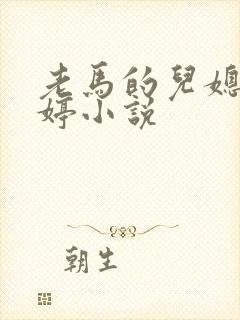 老馬的兒媳
婷小説
朝生